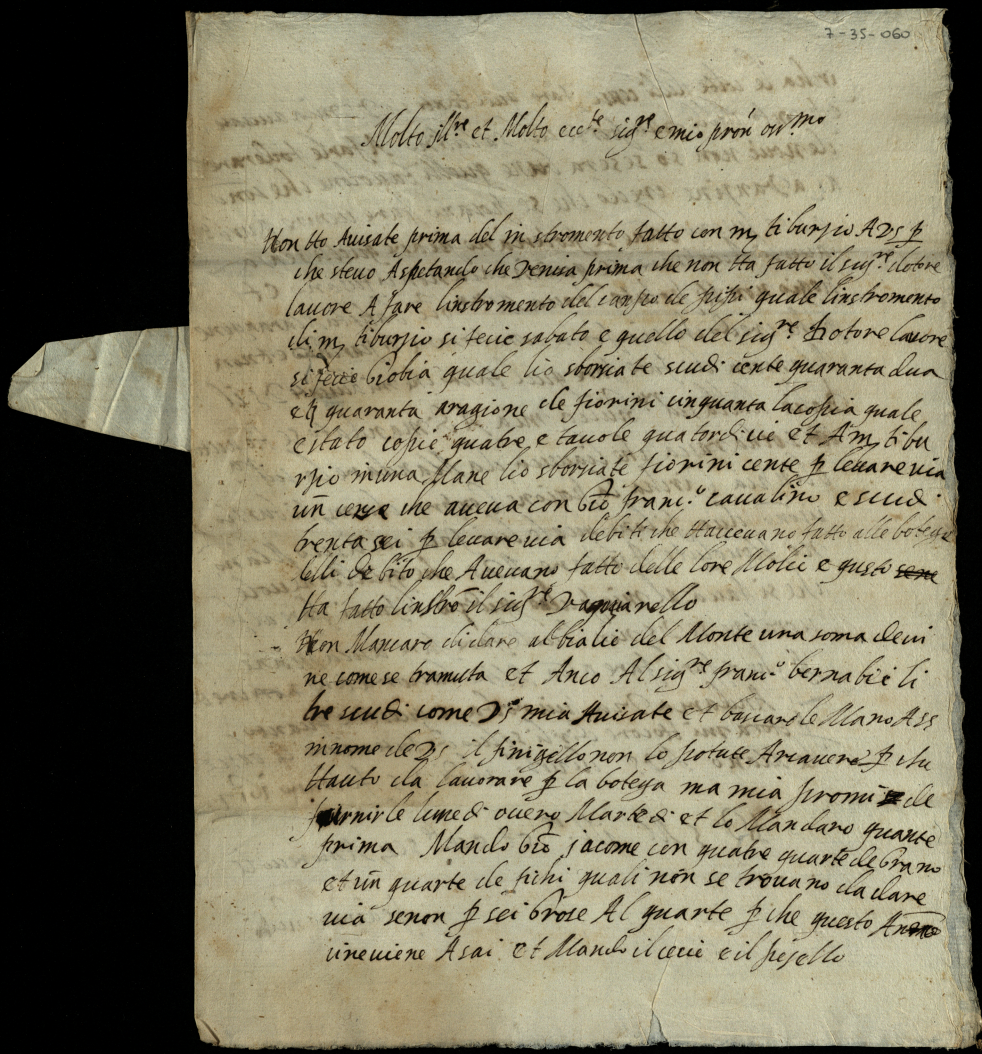 7-35-060
Molto Ill.re et Molto ecc.te sig.re e mio pron oss.mo
Non Ho Avisate prima del in stromento fatto con m tiburzio A Vs p
che stevo Aspetando che Venisa prima che non Ha fatto il sig.re dotore
lavore A fare linstromento del canpo de pipi quale linstromento
di m tiburzio si fecie sabato e quello del sig.re Dotore lavore
si fecie Giobia quale lio sborsate scudi cente quaranta dua
e quaranta aragione de fiorini cinquanta la copia quale
e stato copie quatre e tavole quatordicie et A m tibu
rzio in una Mane lio sborsiate fiorini cente p levare via
un cense che aveva con Gio franc.o cavalino e scudi
trenta sei p levare via debiti che Haveuano fatto alle botege
delli debito che Avevano fatto delle lore Molie e questo
Ha fatto linstro il sig.re
Non Mancaro di dare al balio del Monte una soma de vi
ne come se tramuta et Anco Al sig.re franc.o bernabie li
tre scudi come Vs mia Avisate et bascarole Mano Ass
in nome de Vs il finigello non lo potute Aricavere p che
Hauto da lavorare p la botega ma mia promi de
furnirle lunedi overo Martedi et lo Mandaro quante
prima Mando Gio jacome con quatre quarte de Grano
et un quarte de fichi quali non se trovano da dare
via senon p sei Grose Al quarte p che questo Anno
vineviene Asai et Mando il cecie e il pesello